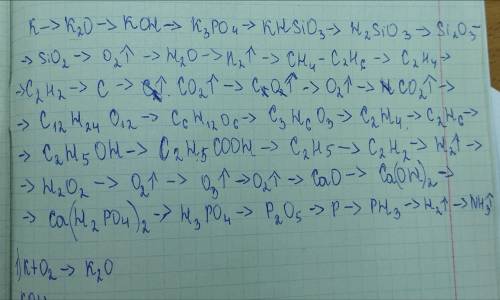 K → K₂O → KOH → K₃PO₄ → KHSiO₃ → H₂SiO₃ → Si₂O₅
→ SiO₂ → O₂↑ → H₂O → H₂↑ → CH₄ – C₂H₆ → C₂H₄ →
→ C₂H₂ → C → CO₂↑ → O₂↑ → CO₂↑ →
→ C₁₂H₂₄O₁₂ → C₆H₁₂O₆ → C₃H₆O₃ → C₂H₄ → C₂H₆ →
→ C₂H₅OH → C₂H₅COOH → C₂H₅ → C₂H₂ → H₂↑ →
→ H₂O₂ → O₂↑ → O₃↑ → O₂↑ → CaO → Ca(OH)₂ →
→ Ca(H₂PO₄)₂ → H₃PO₄ → P₂O₅ → P → PH₃ → H₂↑ → NH₃↑
1) K+O₂ → K₂O